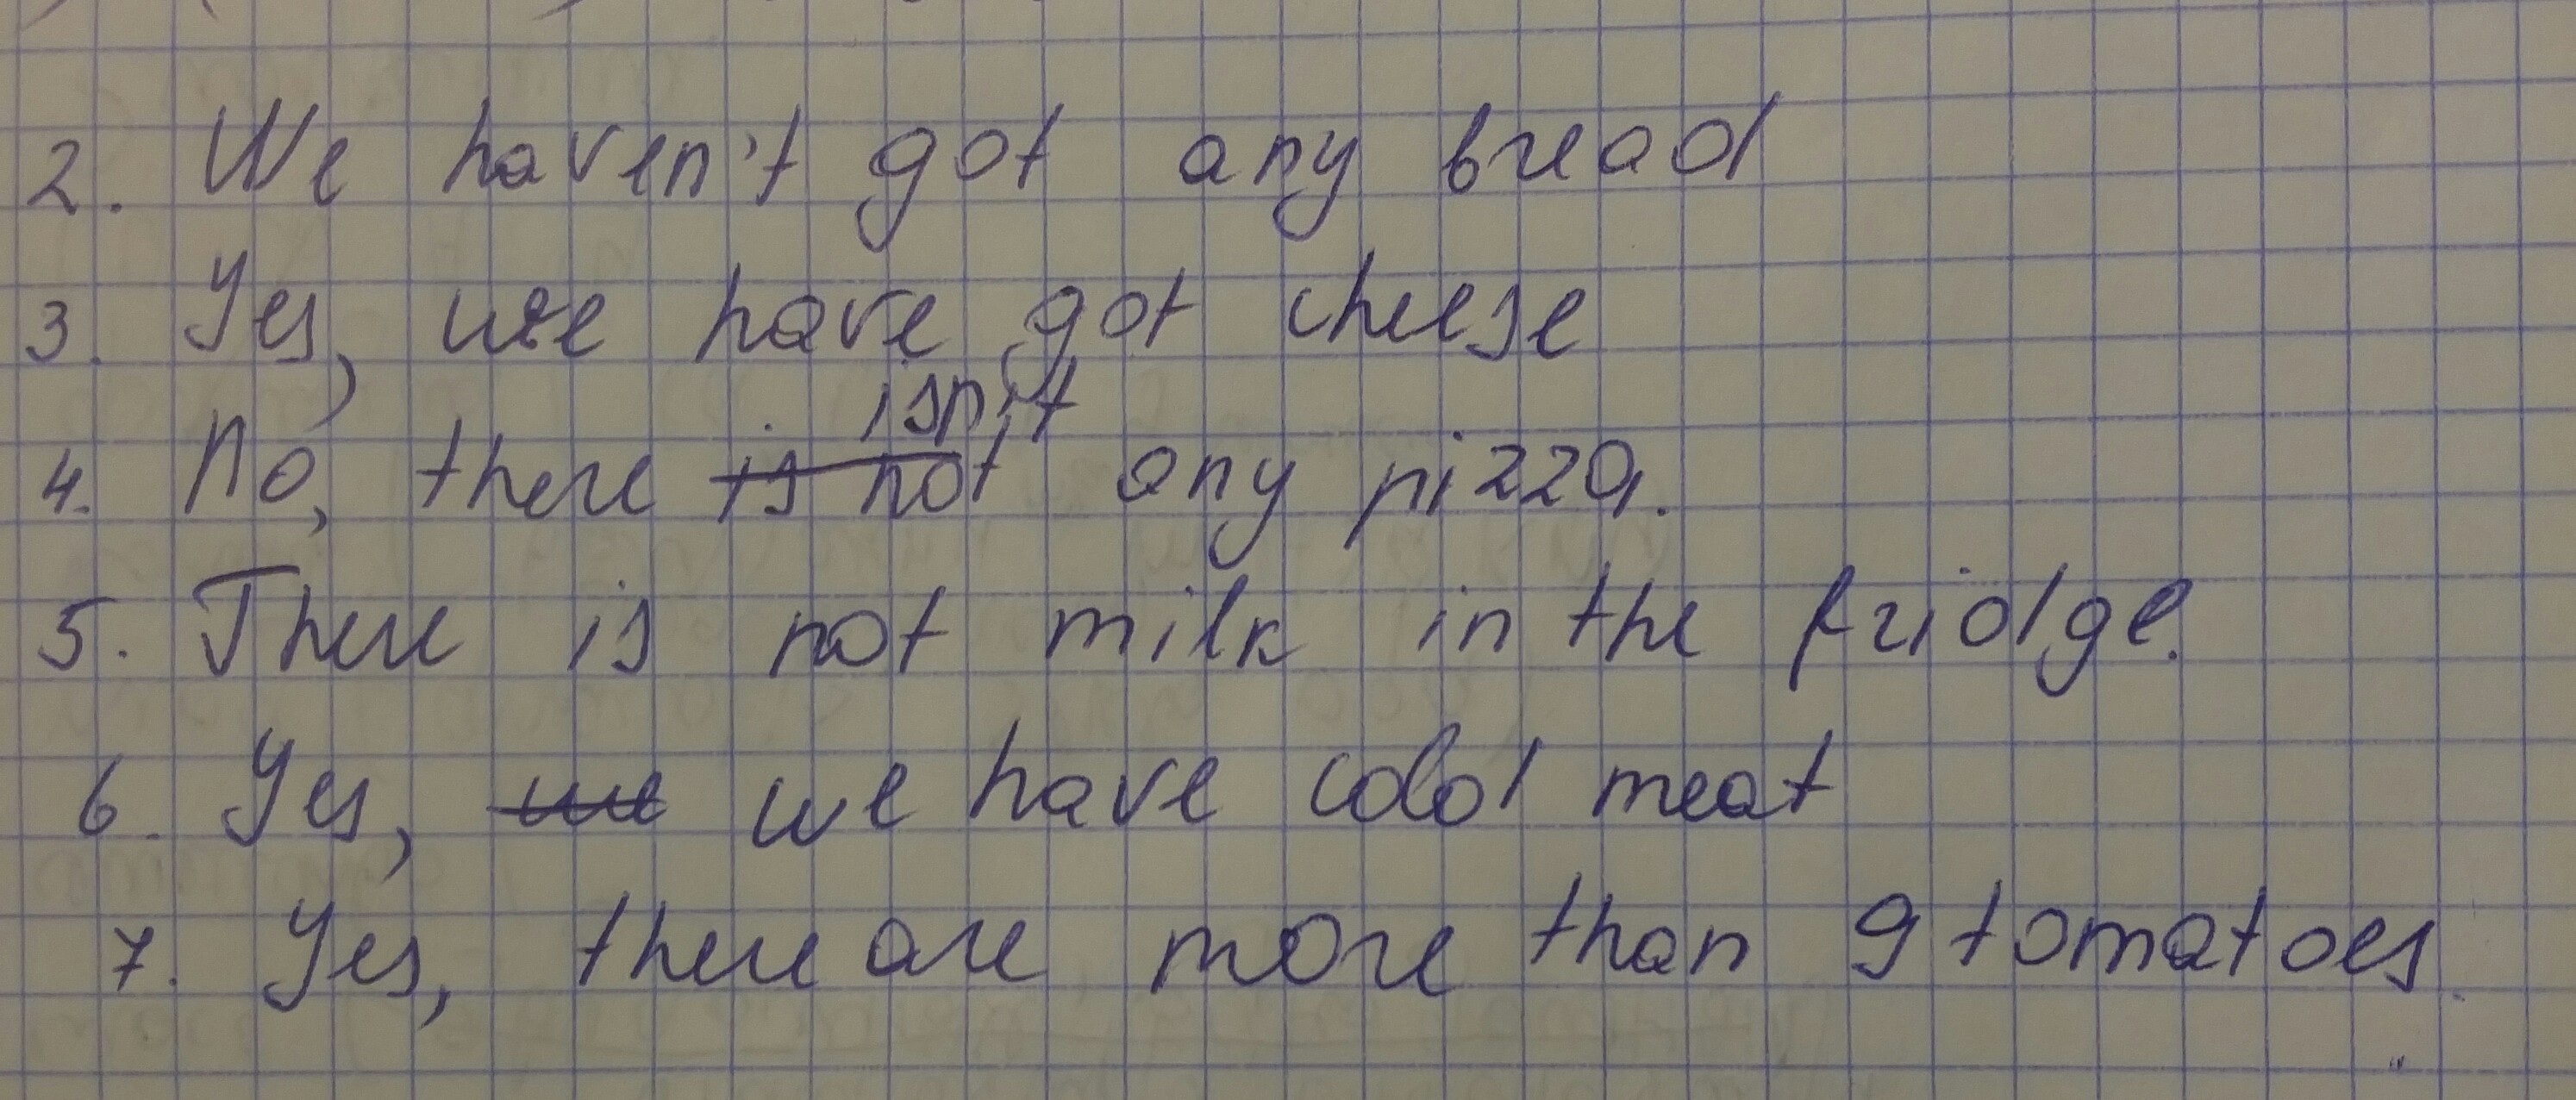 2. We haven't got any bread
3. Yes, we have got cheese
isn't
4. No, there is not any pizza.
5. There is not milk in the fridge.
6. Yes, we we have cold meat
7. Yes, there are more than 9 tomatoes.